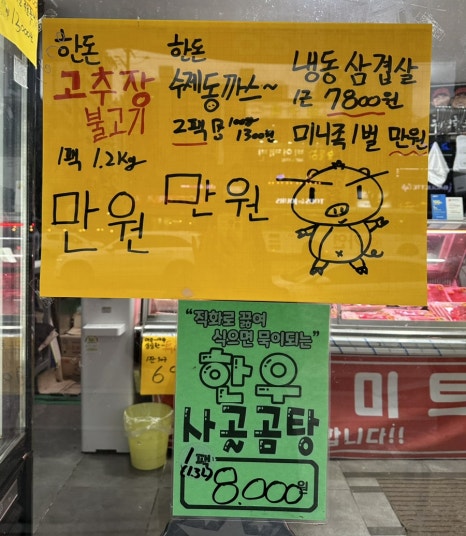 한돈
고추장
불고기
1팩 1.2kg
만원
한돈
수제동까스~
2팩
만원
냉동 삼겹살
1근 7800원
미니족 1벌 만원
"직화로 끓여
식으면 묵이되는"
한우
사골곰탕
1팩
(1.3L)
8.000원
미트
니다!!